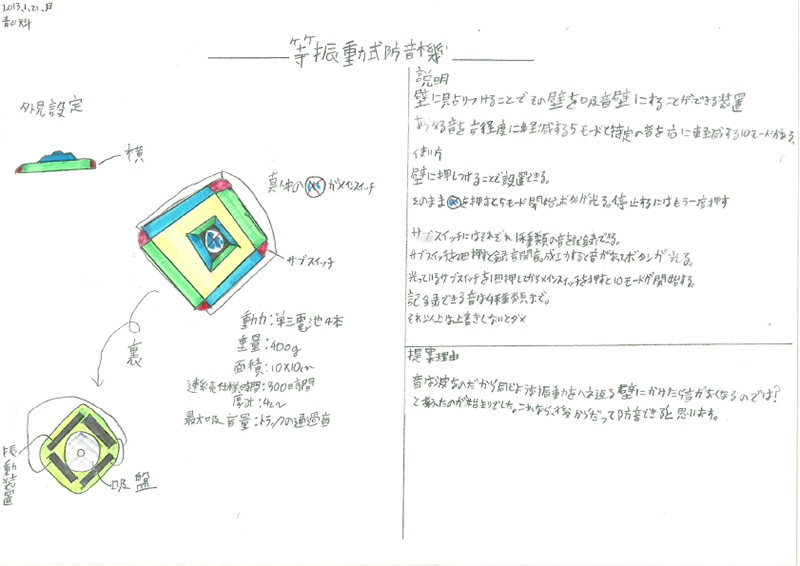 2013.1.21.月
等振動式防音機
外見設定
横
真ん中の がメインスイッチ
サブスイッチ
裏
動力:単三電池4本
重量:400g
面積:10×10cm
連続使用時間:300日間
厚み:4cm
最大吸音量:トラックの通過音
振動装置
吸盤
説明
壁に貼りつけることでその壁を吸音壁にすることができる装置
あらゆる音を 程度に軽減する5モードと特定の音を に軽減する10モードがある。
使い方
壁に押しつけることで設置できる。
そのまま を押すと5モード開始。ボタンが光る。停止するにはもう一度押す
サブスイッチにはそれぞれ1種類の音を記録できる。
サブスイッチを2回押すと録音開始。成こうすると音がなってボタンが光る。
光っているサブスイッチを1回押してからメインスイッチを押すと10モードが開始する。
記録できる音は4種類まで。
それ以上は上書きしないとダメ
提案理由
音は波なのだから同じような振動をハネ返る壁にかけたら音がなくなるのでは?
と考えたのが始まりでした。これなら、後からだって防音できると思います。